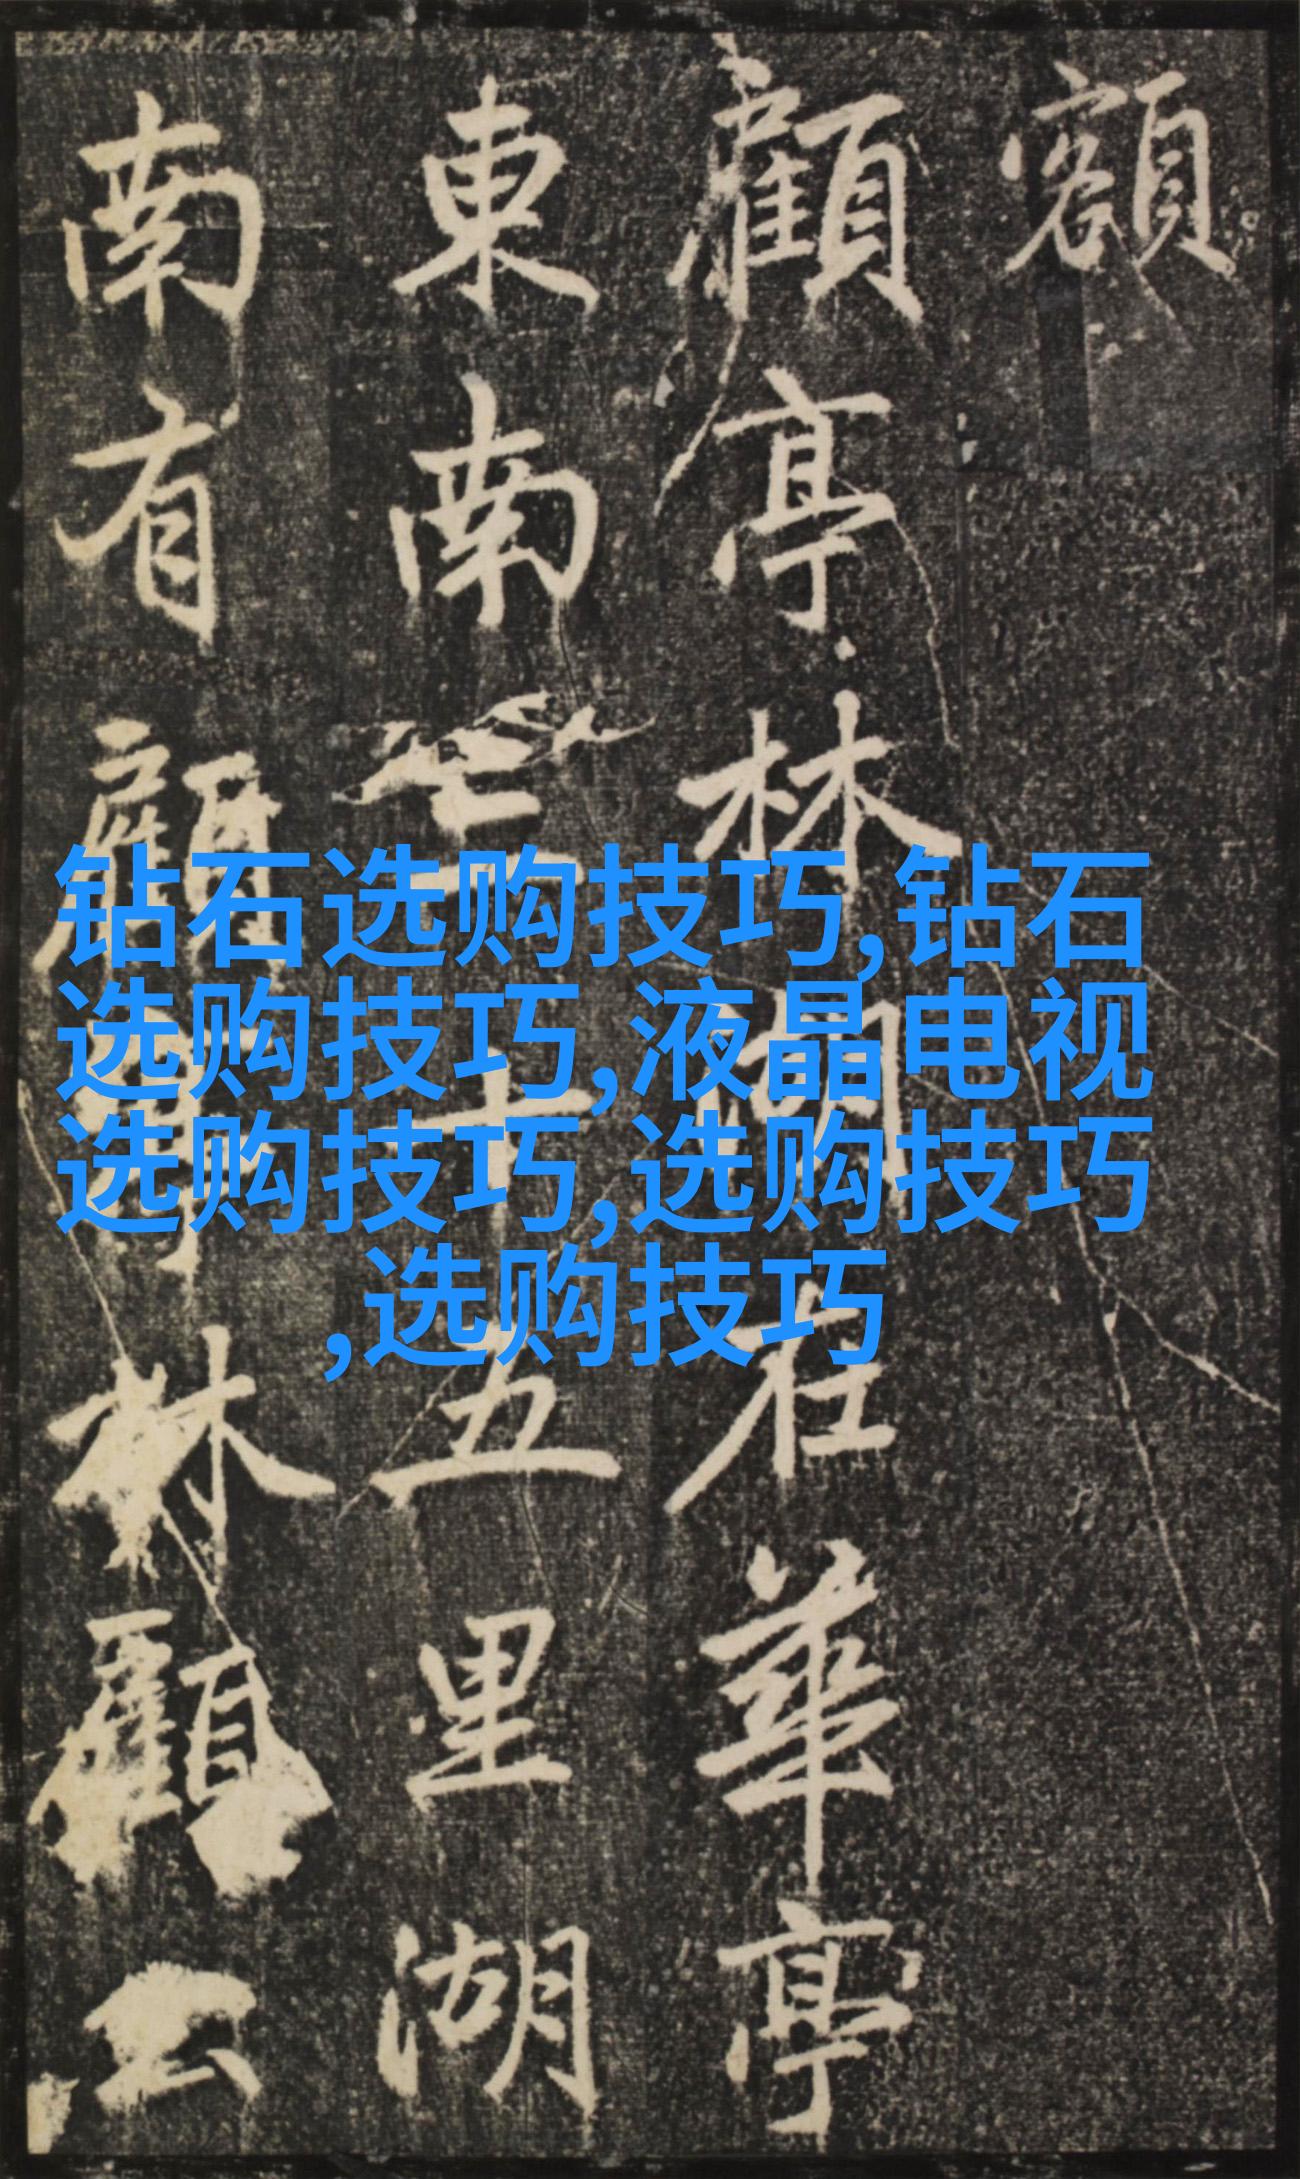 額
顧亭林湖在華亭
東南
十五里湖
南有顧
林顧公
钻石选购技巧,钻石
选购技巧,液晶电视
选购技巧,选购技巧
,选购技巧